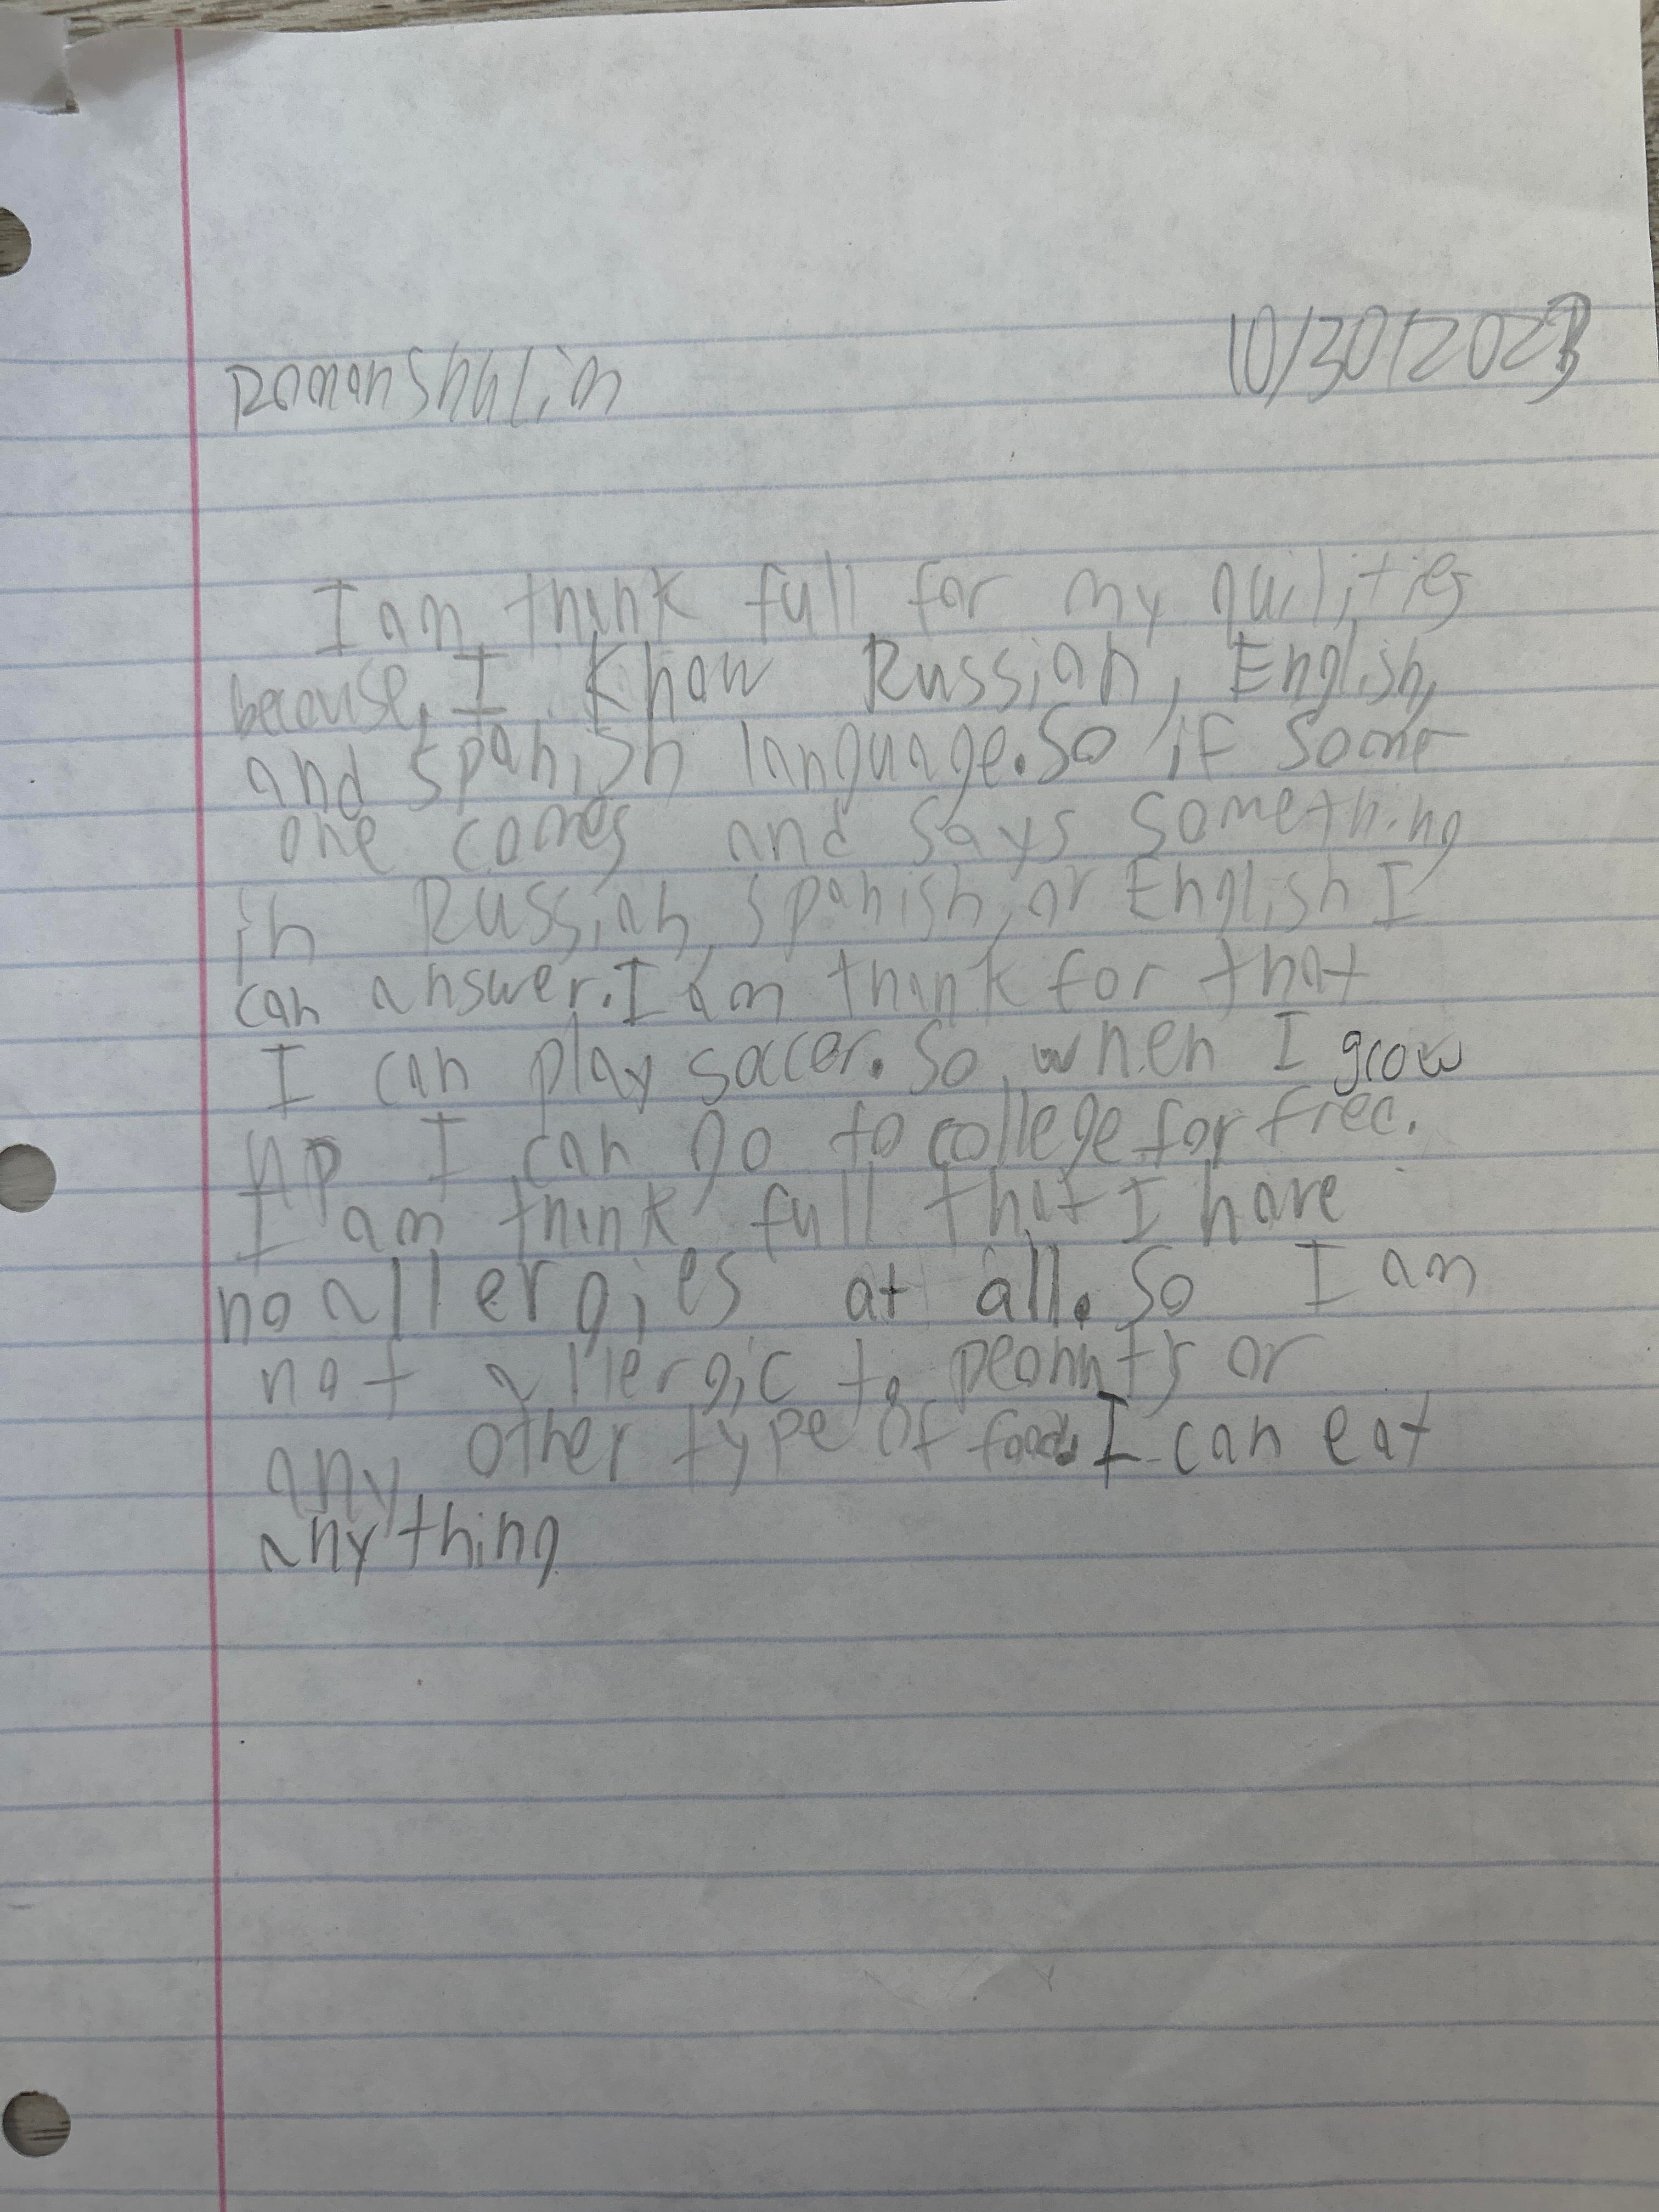 Roman Shulin
10/30/2023
I am think full for my quilities
because, I know Russian, English,
and spanish language. So if some
one comes and says something
in Russian, spanish, or English I
can answer. I am think for that
I can play soccer. So when I grow
up I can go to college for free.
I am think full that I have
no allergies at all. So I am
not allergic to peanuts or
any other type of food. I can eat
anything